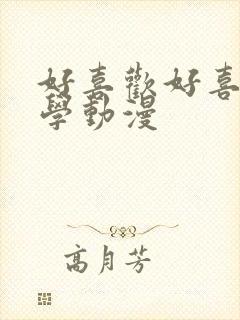 好喜歡好喜
學動漫
高月芳